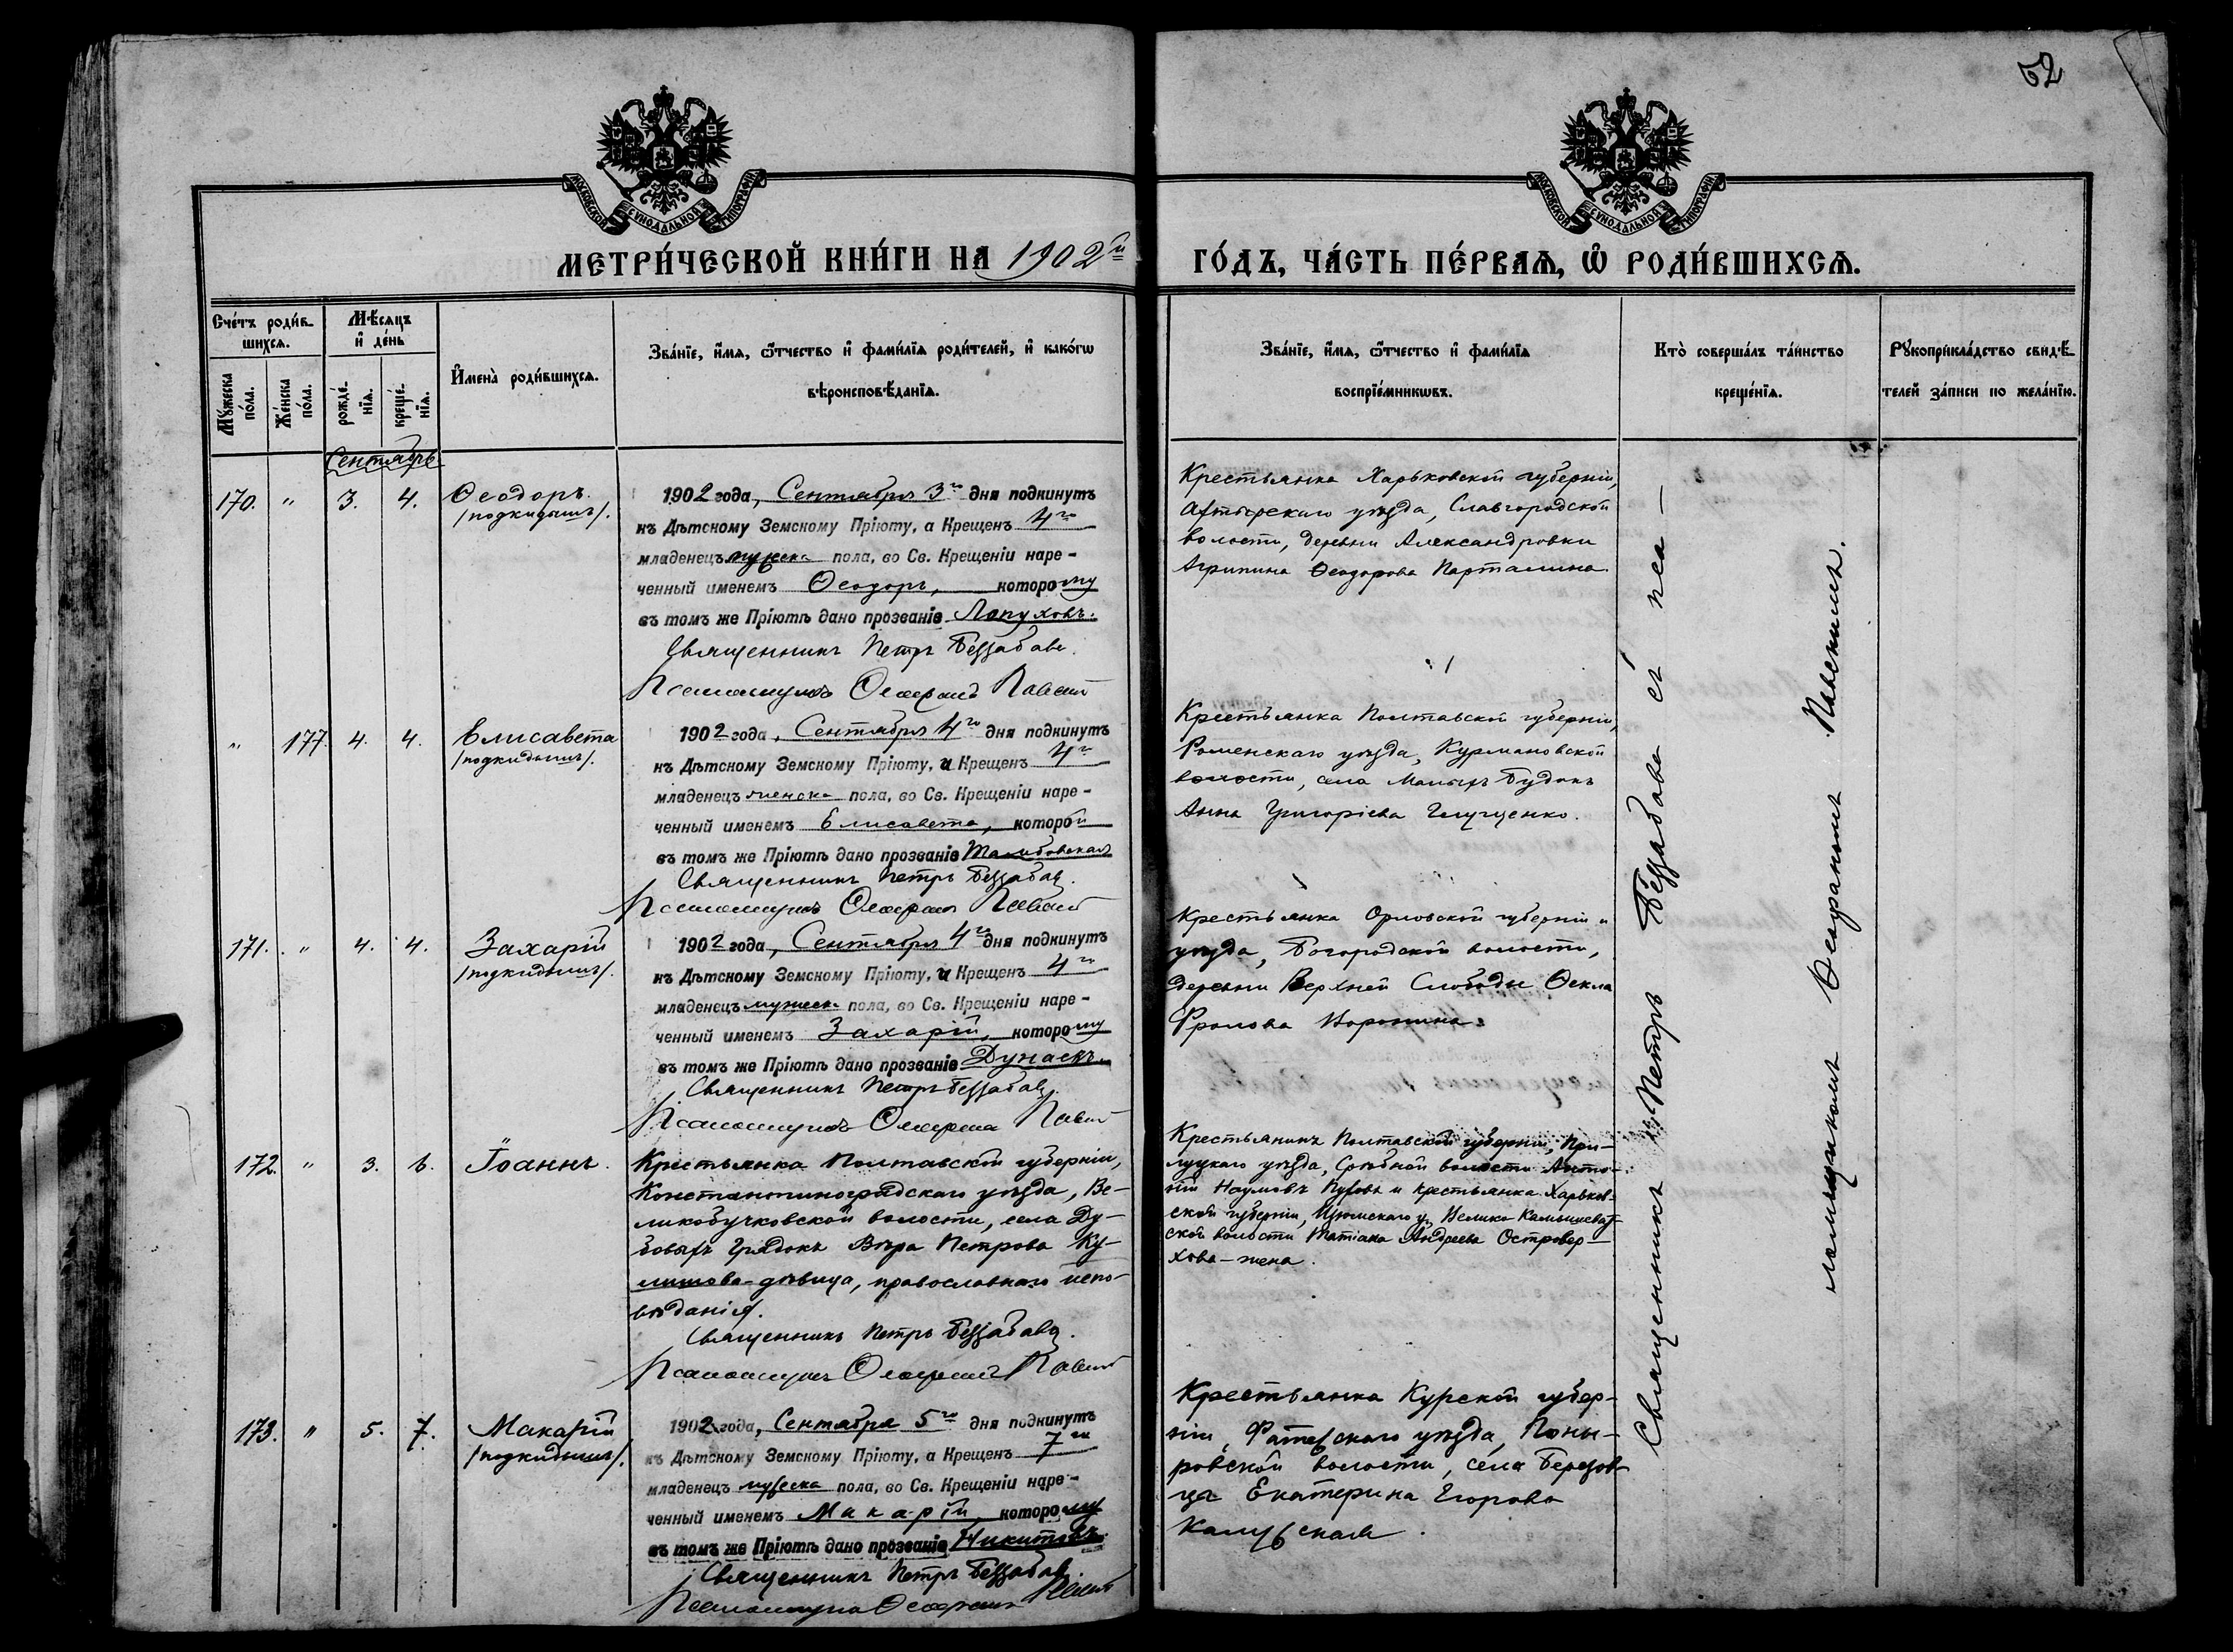 52
МОСКОВСКОЙ СѴНОДАЛЬНОЙ ТИПОГРАФІИ
МОСКОВСКОЙ СѴНОДАЛЬНОЙ ТИПОГРАФІИ
МЕТРИ́ЧЕСКОЙ КНИ́ГИ НА 1902й
ГО́ДЪ, ЧА́СТЬ ПЕ́РВАѦ, Ѡ҆ РОДИ́ВШИХСѦ.
Сче́тъ роди́в-
шихсѧ.
Мꙋ́жеска по́ла.
Же́нска по́ла.
Мѣ́сѧцъ
и҆ де́нь
рожде́-
нїѧ.
креще́-
нїѧ.
И҆мена̀ роди́вшихсѧ.
Зва́нїе, и҆́мѧ, ѻ҆́тчество и҆ фами́лїѧ роди́телей, и҆ како́гѡ
вѣроисповѣ́данїѧ.
Зва́нїе, и҆́мѧ, ѻ҆́тчество и҆ фами́лїѧ
воспрїе́мникѡвъ.
Кто̀ соверша́лъ та́инство
креще́нїѧ.
Рꙋкоприкла́дство свидѣ́-
телей за́писи по жела́нїю.
Сентябрь
170. " 3. 4. Ѳеодоръ.
/подкидышъ/.
1902 года, Сентября 3го дня подкинутъ
къ Дѣтскому Земскому Пріюту, а Крещенъ 4го
младенецъ мужеска пола, во Св. Крещеніи наре-
ченный именемъ Ѳеодоръ, которому
въ томъ же Пріютѣ дано прозваніе Лопуховъ.
Священникъ Петръ Беззабава.
Псаломщикъ
Крестьянка Харьковской губерніи,
Ахтырскаго уѣзда, Славгородской
волости, деревни Александровки
Агрипина Ѳеодорова Парталина.
" 177. 4. 4. Елисавета
/подкидышъ/.
1902 года, Сентября 4го дня подкинутъ
къ Дѣтскому Земскому Пріюту, и Крещенъ 4го
младенецъ женска пола, во Св. Крещеніи наре-
ченный именемъ Елисавета, которой
въ томъ же Пріютѣ дано прозваніе Тамбовская
Священникъ Петръ Беззабава.
Псаломщикъ
Крестьянка Полтавской губерніи,
Роменскаго уѣзда, Курмановской
волости, села Малыхъ Будокъ
Анна Григоріева Глущенко.
171. " 4. 4. Захарій
/подкидышъ/.
1902 года, Сентября 4го дня подкинутъ
къ Дѣтскому Земскому Пріюту, и Крещенъ 4го
младенецъ мужеска пола, во Св. Крещеніи наре-
ченный именемъ Захарій, которому
въ томъ же Пріютѣ дано прозваніе
Священникъ Петръ Беззабава.
Псаломщикъ
Крестьянка Орловской губерніи и
уѣзда, Богородской волости,
деревни Верхней Слободы Ѳекла
Фролова
172. " 3. 6. Іоаннъ.
Крестьянка Полтавской губерніи,
Константиноградскаго уѣзда, Ве-
ликобучковской волости, села Ду-
бовыхъ Грядокъ Вѣра Петрова Ку-
лишова-дѣвица, православнаго испо-
вѣданія.
Священникъ Петръ Беззабава.
Псаломщикъ
Крестьянинъ Полтавской губерніи, При-
луцкаго уѣзда, Срѣбной волости Анто-
ній Наумовъ и крестьянка Харьков-
ской губерніи, Изюмскаго у., Велико-Камышеват-
ской волости Татіана Андреева Островер-
хова-жена.
173. " 5. 7. Макарій
/подкидышъ/.
1902 года, Сентября 5го дня подкинутъ
къ Дѣтскому Земскому Пріюту, а Крещенъ 7го
младенецъ мужеска пола, во Св. Крещеніи наре-
ченный именемъ Макарій, которому
въ томъ же Пріютѣ дано прозваніе Никитовъ.
Священникъ Петръ Беззабава.
Псаломщикъ
Крестьянка Курской губер-
ніи, Фатежскаго уѣзда, Поны-
ровской волости, села Березов-
ца Екатерина Егорова
Калужская.
Священникъ Петръ Беззабава съ пса-
ломщикомъ